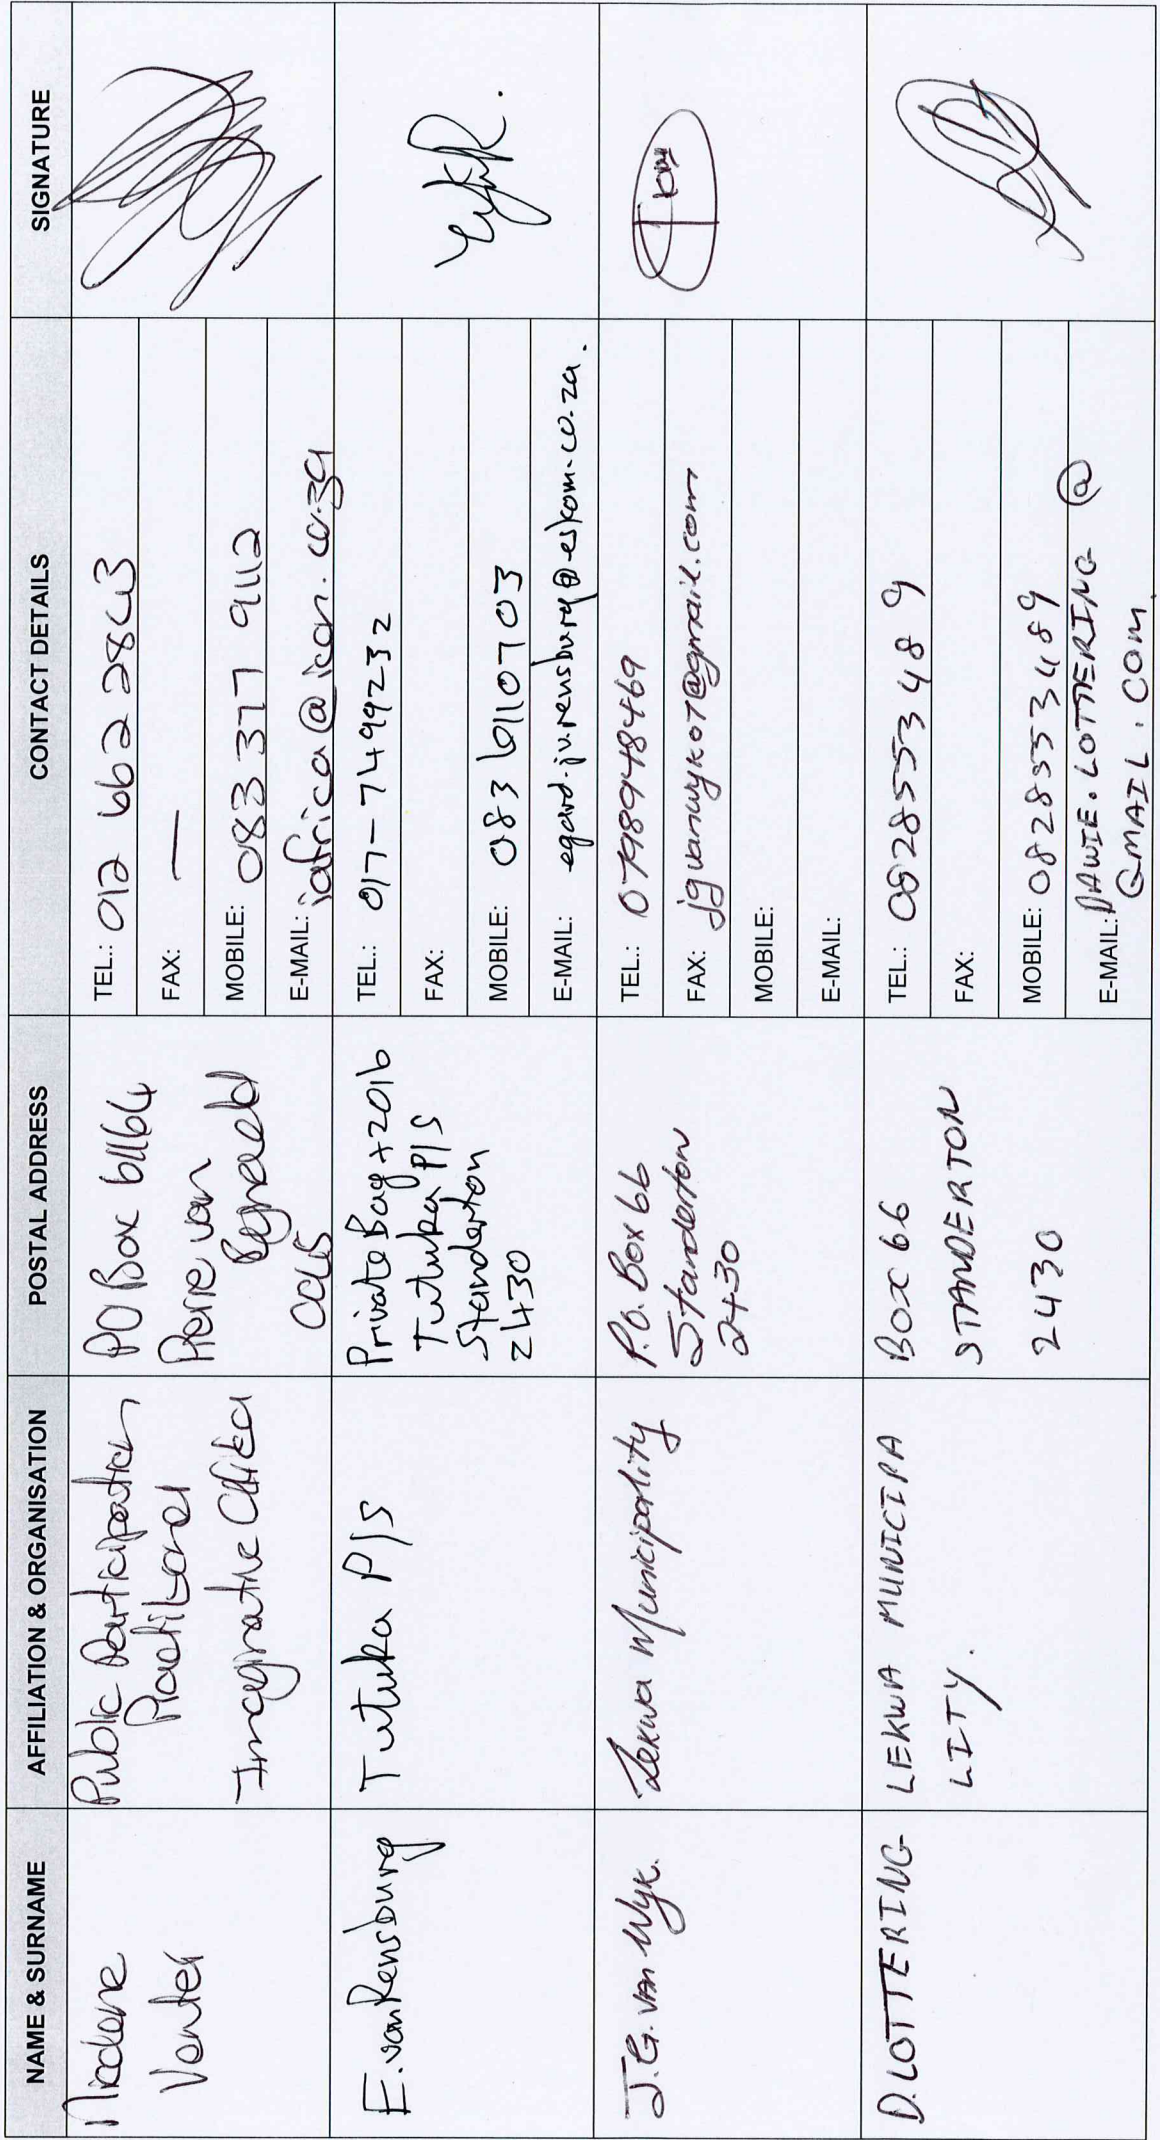 NAME & SURNAME
AFFILIATION & ORGANISATION
POSTAL ADDRESS
CONTACT DETAILS
SIGNATURE
Nicolene
Venter
Public Participation
Practitioner
Imaginative Africa
PO Box 61164
Pierre van
Ryneveld
0045
TEL.: 012 662 2843
FAX: —
MOBILE: 083 377 9112
E-MAIL: iafrica@icon.co.za
E. van Rensburg
Tutuka P/S
Private Bag x2016
Tutuka P/S
Standerton
2430
TEL.: 017-7499232
FAX:
MOBILE: 083 6110703
E-MAIL: egard.jv.rensburg@eskom.co.za.
J.G. van Wyk.
Lekwa Municipality
P.O. Box 66
Standerton
2430
TEL.: 0798948469
FAX: jgvanwyk07@gmail.com
MOBILE:
E-MAIL:
D. LOTTERING
LEKWA MUNICIPA
LITY.
Box 66
STANDERTON
2430
TEL.: 0828553489
FAX:
MOBILE: 0828553489
E-MAIL: DAWIE.LOTTERING @
GMAIL.COM